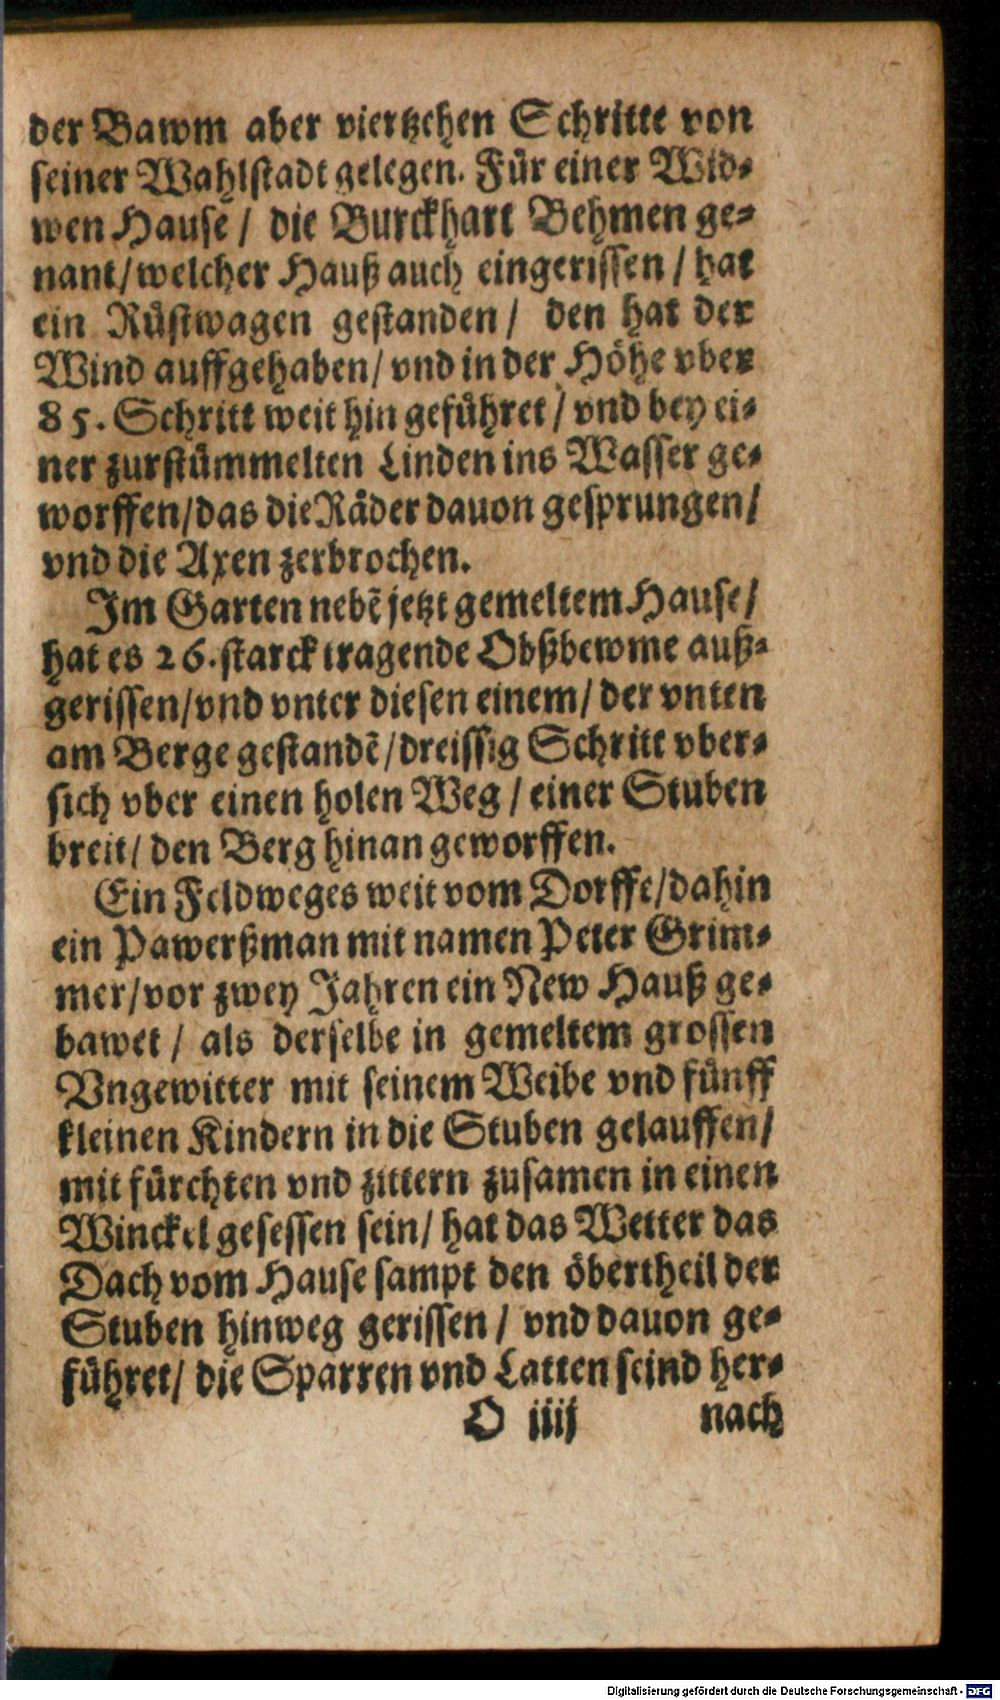 der Bawm aber viertzehen Schritte von
seiner Wahlstadt gelegen. Für einer Wid-
wen Hause / die Burckhart Behmen ge-
nant/welcher Hauß auch eingerissen / hat
ein Rüstwagen gestanden / den hat der
Wind auffgehaben/ vnd in der Höhe vber
85. Schritt weit hin geführet / vnd bey ei-
ner zurstümmelten Linden ins Wasser ge-
worffen/das die Räder dauon gesprungen/
vnd die Axen zerbrochen.
Im Garten nebē jetzt gemeltem Hause/
hat es 26. starck tragende Obßbewme auß-
gerissen/vnd vnter diesen einem/ der vnten
am Berge gestandē/dreissig Schritt vber-
sich vber einen holen Weg / einer Stuben
breit/ den Berg hinan geworffen.
Ein Feldweges weit vom Dorffe/dahin
ein Pawerßman mit namen Peter Grim-
mer/vor zwey Jahren ein New Hauß ge-
bawet / als derselbe in gemeltem grossen
Vngewitter mit seinem Weibe vnd fünff
kleinen Kindern in die Stuben gelauffen/
mit fürchten vnd zittern zusamen in einen
Winckel gesessen sein/ hat das Wetter das
Dach vom Hause sampt den öbertheil der
Stuben hinweg gerissen / vnd dauon ge-
führet/ die Sparren vnd Latten seind her-
O iiij nach
Digitalisierung gefördert durch die Deutsche Forschungsgemeinschaft - DFG